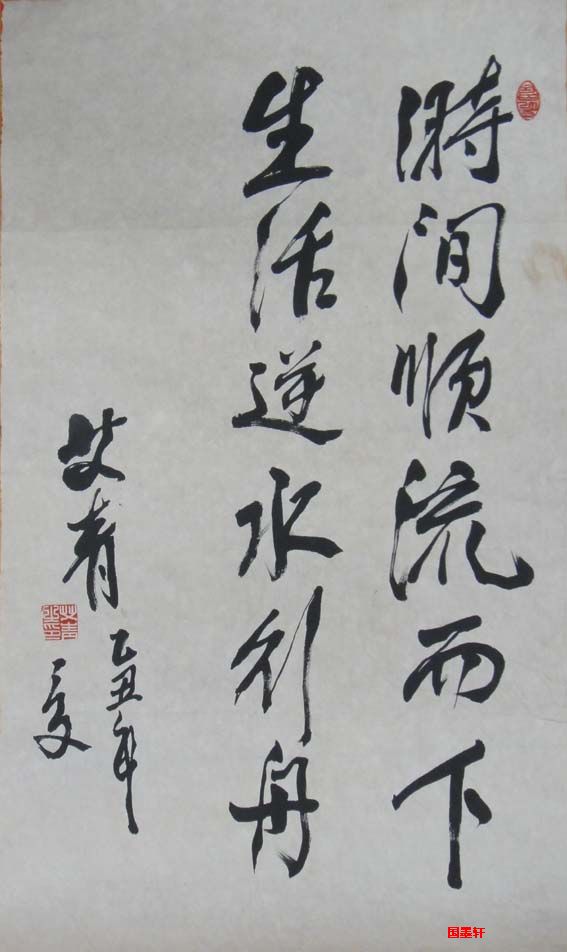 时间顺流而下
生活逆水行舟
艾青
乙丑年
夏
国墨轩